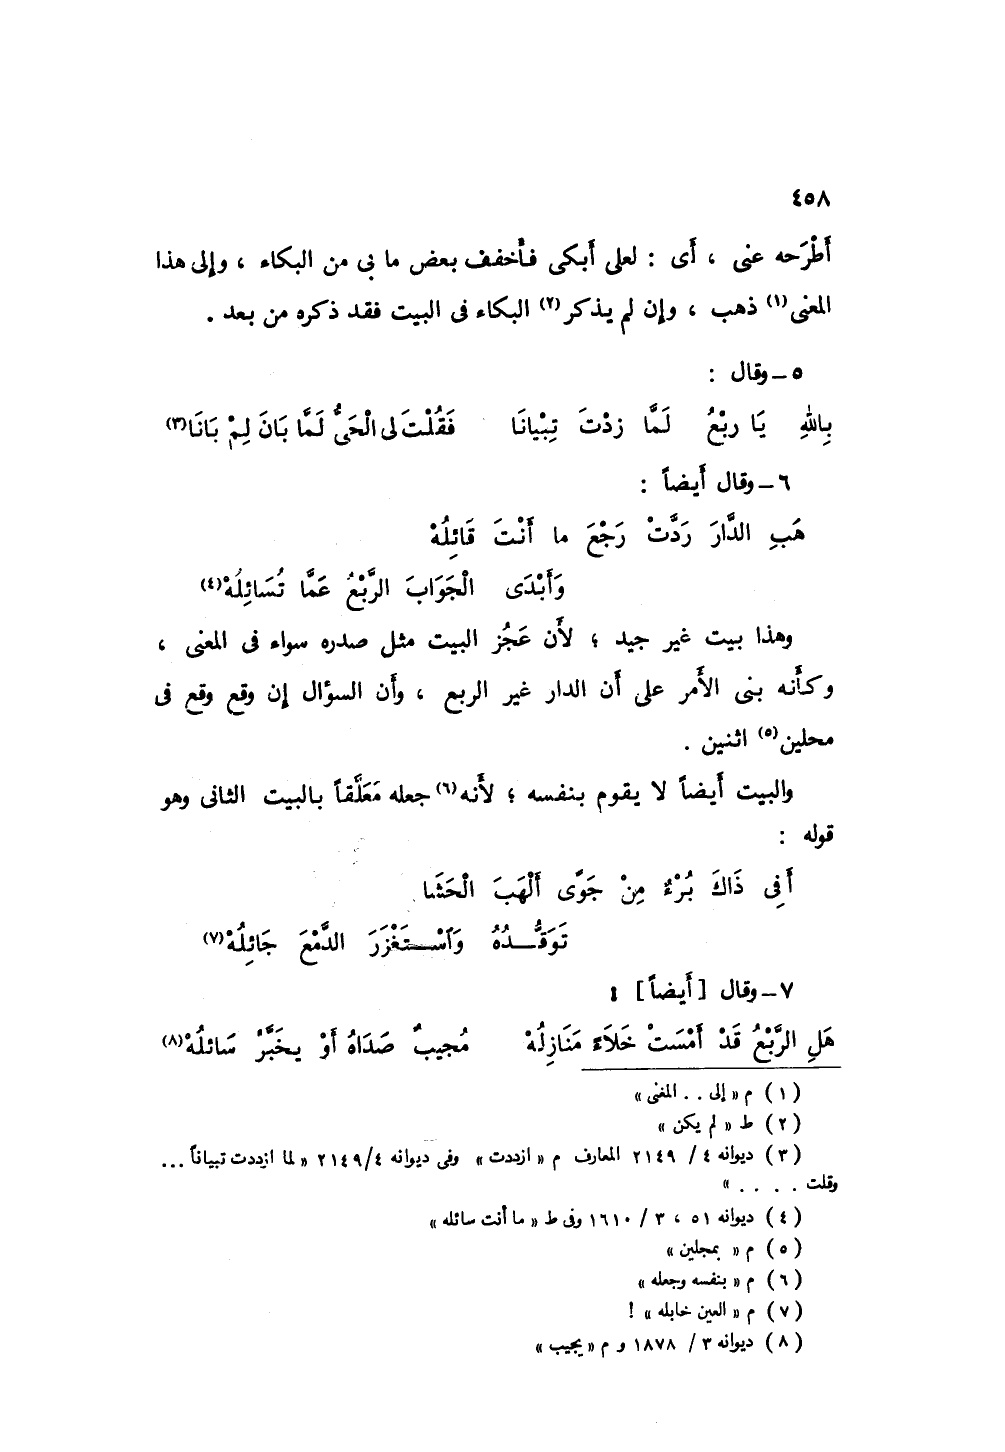 ٤٥٨
أَطْرَحه عنى ، أَى : لعلى أَبكى فأخفف بعض ما بى من البكاء ، وإلى هذا
المعنى(١) ذهب ، وإن لم يذكر(٢) البكاء فى البيت فقد ذكره من بعد .
٥ – وقال :
بِاللهِ يَا ربْعُ لَمَّا زدْتَ تِبْيانَا فَقُلْتَ لى الْحَىُّ لَمَّا بَانَ لِمْ بَانَا(٣)
٦ – وقال أَيضاً :
هَبِ الدَّارَ رَدَّتْ رَجْعَ ما أَنْتَ قَائِلُهْ
وَأَبْدَى الْجَوَابَ الرَّبْعُ عَمَّا تُسَائِلُهْ(٤)
وهذا بيت غير جيد ؛ لأَن عَجُز البيت مثل صدره سواء فى المعنى ،
وكأَنه بنى الأَمر على أَن الدار غير الربع ، وأَن السؤال إن وقع وقع فى
محلين(٥) اثنين .
والبيت أَيضاً لا يقوم بنفسه ؛ لأَنه(٦) جعله مَعَلَّقاً بالبيت الثانى وهو
قوله :
أَفِى ذَاكَ بُرْءٌ مِنْ جَوًى أَلْهَبَ الْحَشَا
تَوَقُّــدُهُ وَاسْــتَغْزَرَ الدَّمْعَ جَائِلُهْ(٧)
٧ – وقال [ أَيضاً ] :
هَلِ الرَّبْعُ قَدْ أَمْسَتْ خَلَاءً مَنَازِلُهْ مُجيبٌ صَدَاهُ أَوْ يخَبَّرْ سَائلُهْ(٨)
( ١ ) م « إلى . . المغنى »
( ٢ ) ط « لم يكن »
( ٣ ) ديوانه ٤ / ٢١٤٩ المعارف م « ازددت » وفى ديوانه ٤/ ٢١٤٩ « لما ازددت تبياناً ...
وقلت . . . . »
( ٤ ) ديوانه ٥١ ، ٣ / ١٦١٠ وفى ط « ما أنت سائله »
( ٥ ) م « بمجلين »
( ٦ ) م « بنفسه وجعله »
( ٧ ) م « العين خابله » !
( ٨ ) ديوانه ٣ / ١٨٧٨ و م « يجيب »